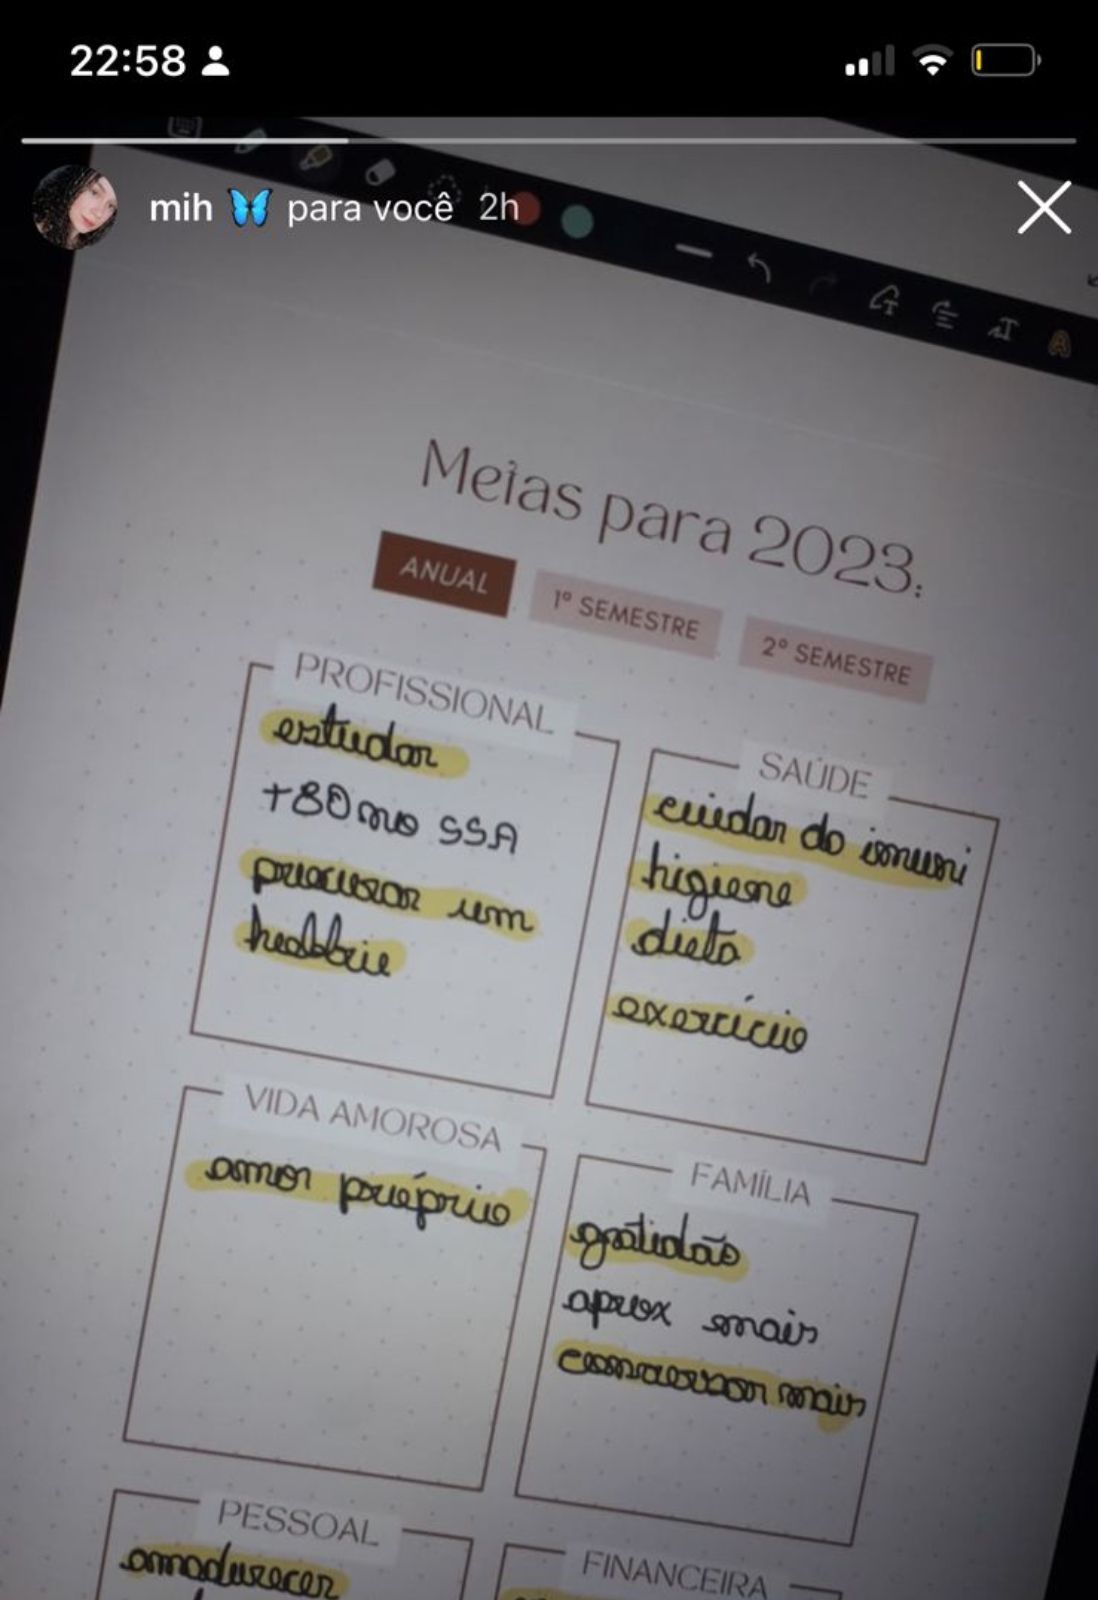 22:58
mih 🦋 para você 2h
Metas para 2023:
ANUAL
1º SEMESTRE
2º SEMESTRE
PROFISSIONAL
estudar
+80 no SSA
procurar um
hobbie
SAÚDE
cuidar do imuni
higiene
dieta
exercício
VIDA AMOROSA
amor próprio
FAMÍLIA
gratidão
aprox mais
conversar mais
PESSOAL
amadurecer
FINANCEIRA